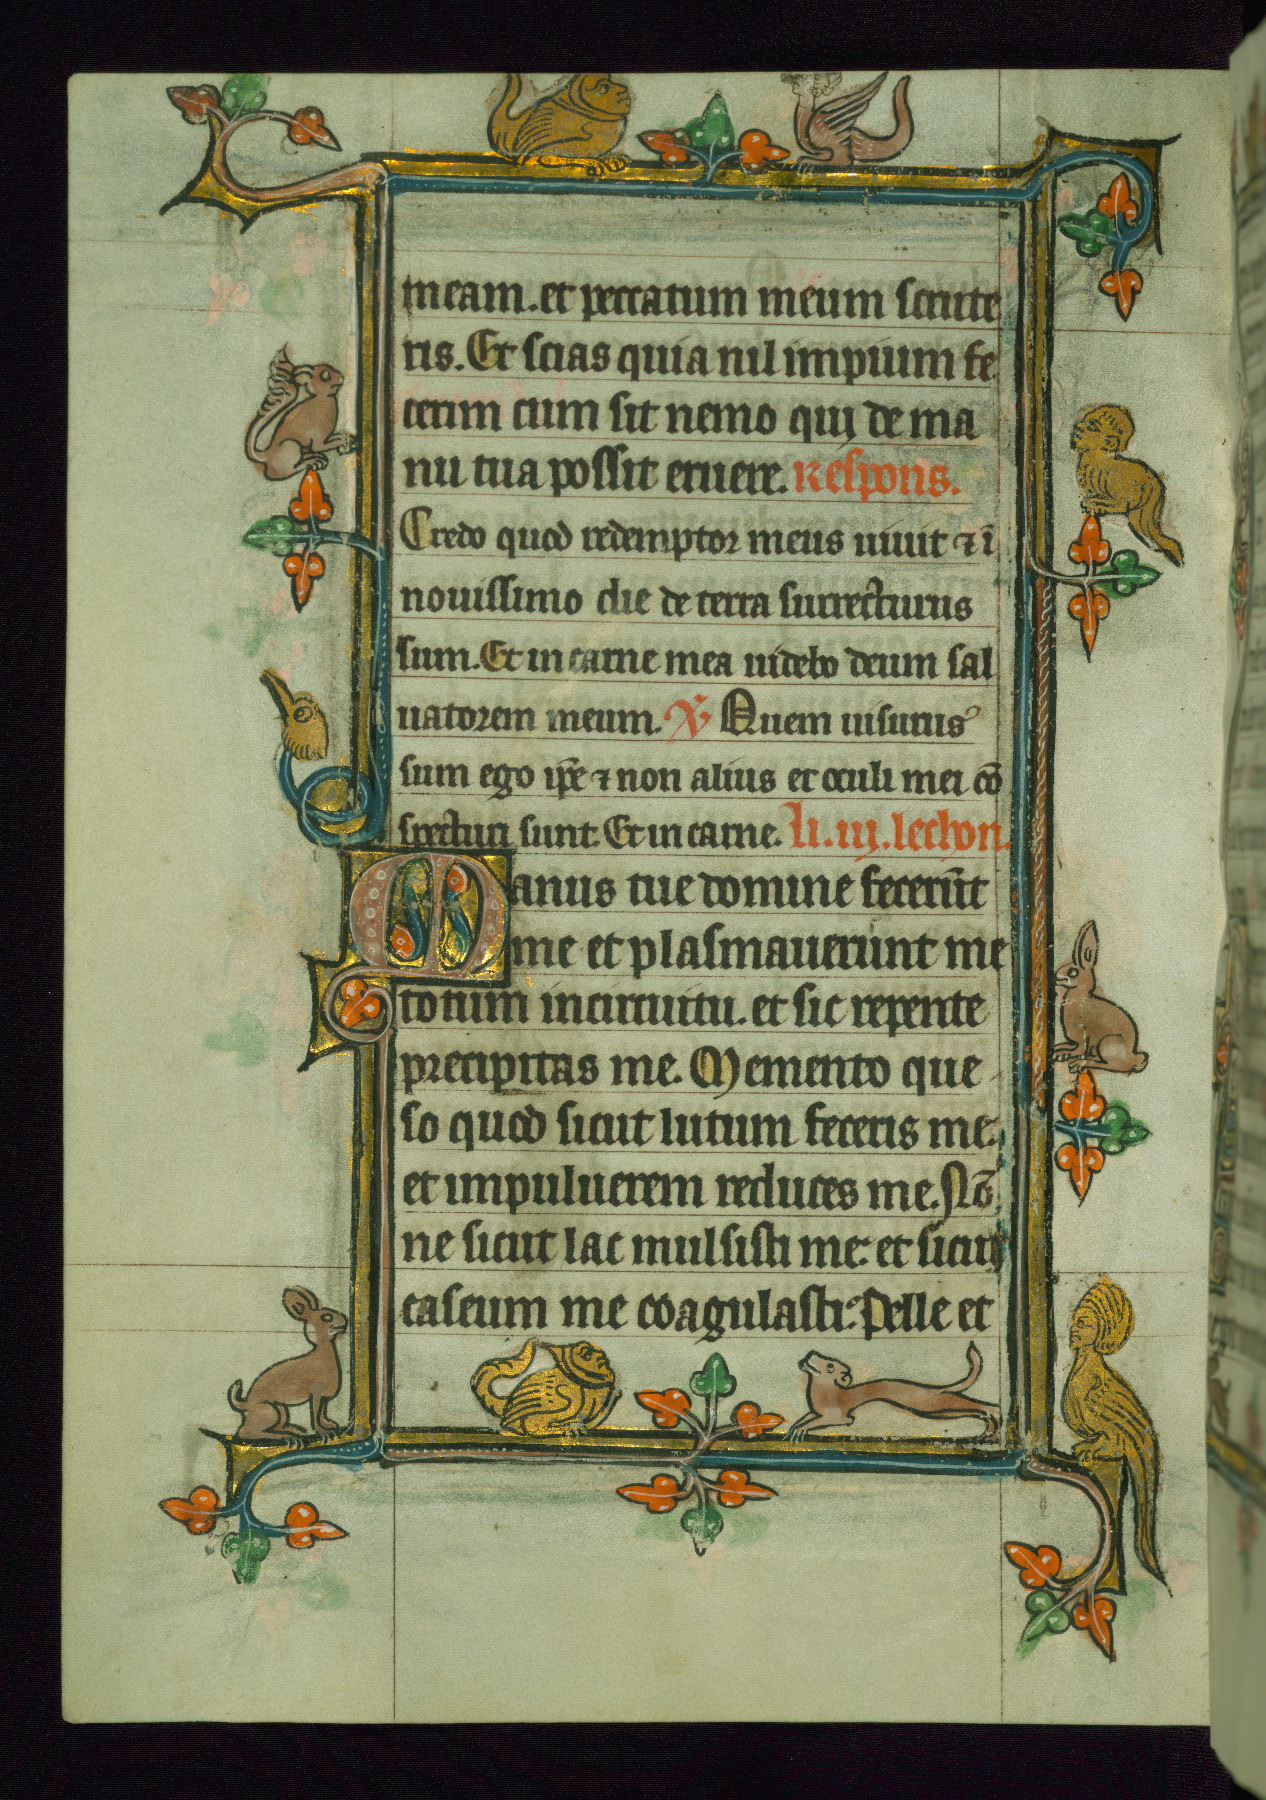 meam. et peccatum meum scrute
ris. Et scias quia nil impium fe
cerim cum sit nemo qui de ma
nu tua possit eruere. Respons.
Credo quod redemptor meus uiuit ⁊ ī
nouissimo die de terra surrecturus
sum. Et in carne mea uidebo deum sal
uatorem meum. ℣ Quem uisurus
sum ego ip̄e ⁊ non alius et oculi mei cō
specturi sunt. Et in carne. li. iij. lection.
Manus tue domine fecerūt
me et plasmauerunt me
totum in circuitu. et sic repente
precipitas me. Memento que
so quod sicut lutum feceris me.
et impuluerem reduces me. Nō
ne sicut lac mulsisti me: et sicut
caseum me coagulasti: Pelle et